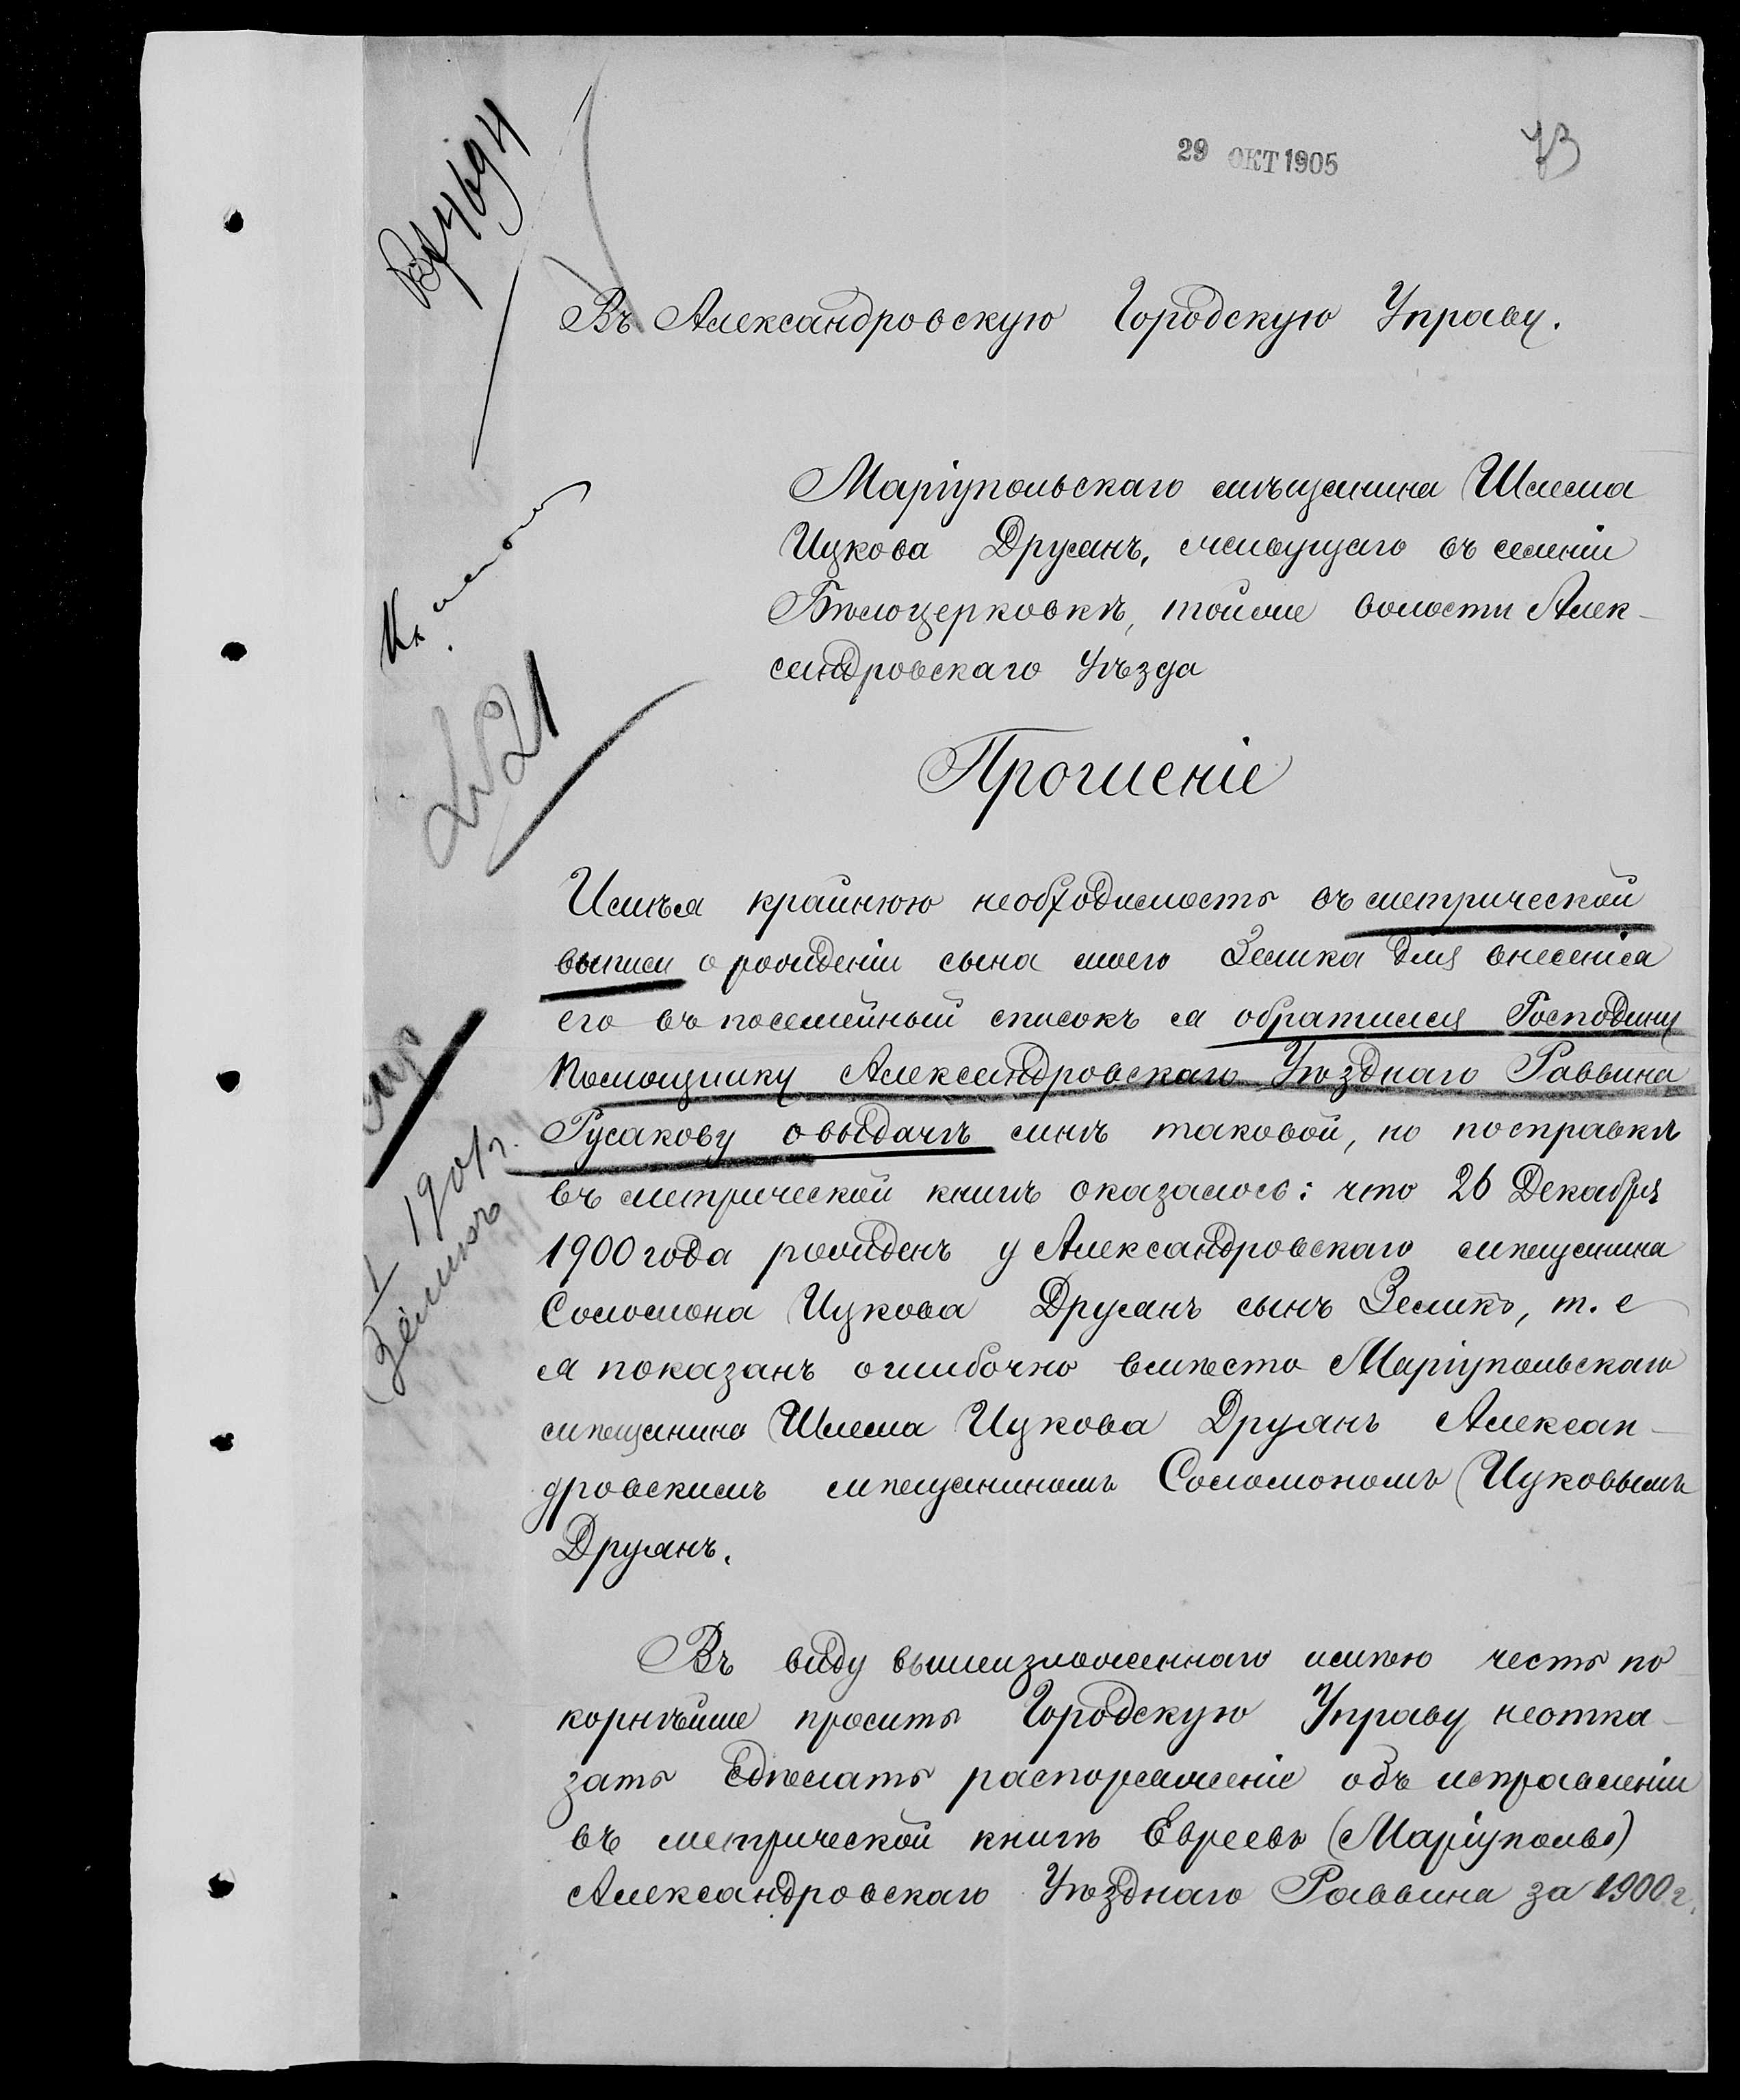 29 ОКТ 1905
73
Вх 4694
Въ Александровскую Городскую Управу.
Маріупольскаго мѣщанина Шлема
Ицкова Друянъ, живущаго въ селеніи
Бѣлоцерковкѣ, тойже волости Алек-
сандровскаго Уѣзда
№ 21
Прошеніе
Имѣя крайнюю необходимость въ метрической
выписи о рожденіи сына моего Зелика для внесенія
его въ посемейный списокъ я обратился Господину
Помощнику Александровскаго Уѣзднаго Раввина
Русакову о выдачѣ мнѣ таковой, но посправкѣ
въ метрической книгѣ оказалось: что 26 Декабря
1900 года рожденъ у Александровскаго мѣщанина
Соломона Ицкова Друянъ сынъ Зеликъ, т. е
я показанъ ошибочно вмѣсто Маріупольскаго
мѣщанина Шлема Ицкова Друянъ Алексан-
дровскимъ мѣщаниномъ Соломономъ Ицковымъ
Друянъ.
1901 г.
Зеликъ
Въ виду вышеизложеннаго имѣю честь по
корнѣйше просить Городскую Управу неотка-
зать сдѣлать распоряженіе объ исправленіи
въ метрической книгѣ Евреевъ (Маріуполь)
Александровскаго Уѣзднаго Раввина за 1900 г.